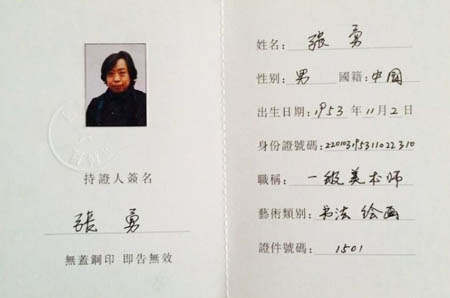 持證人簽名
張勇
無蓋鋼印 即告無效
姓名：张勇
性别：男 國籍：中国
出生日期：1953年11月2日
身份證號碼：220103195311022310
職稱：一级美术师
藝術類别：书法 绘画
證件號碼：1501